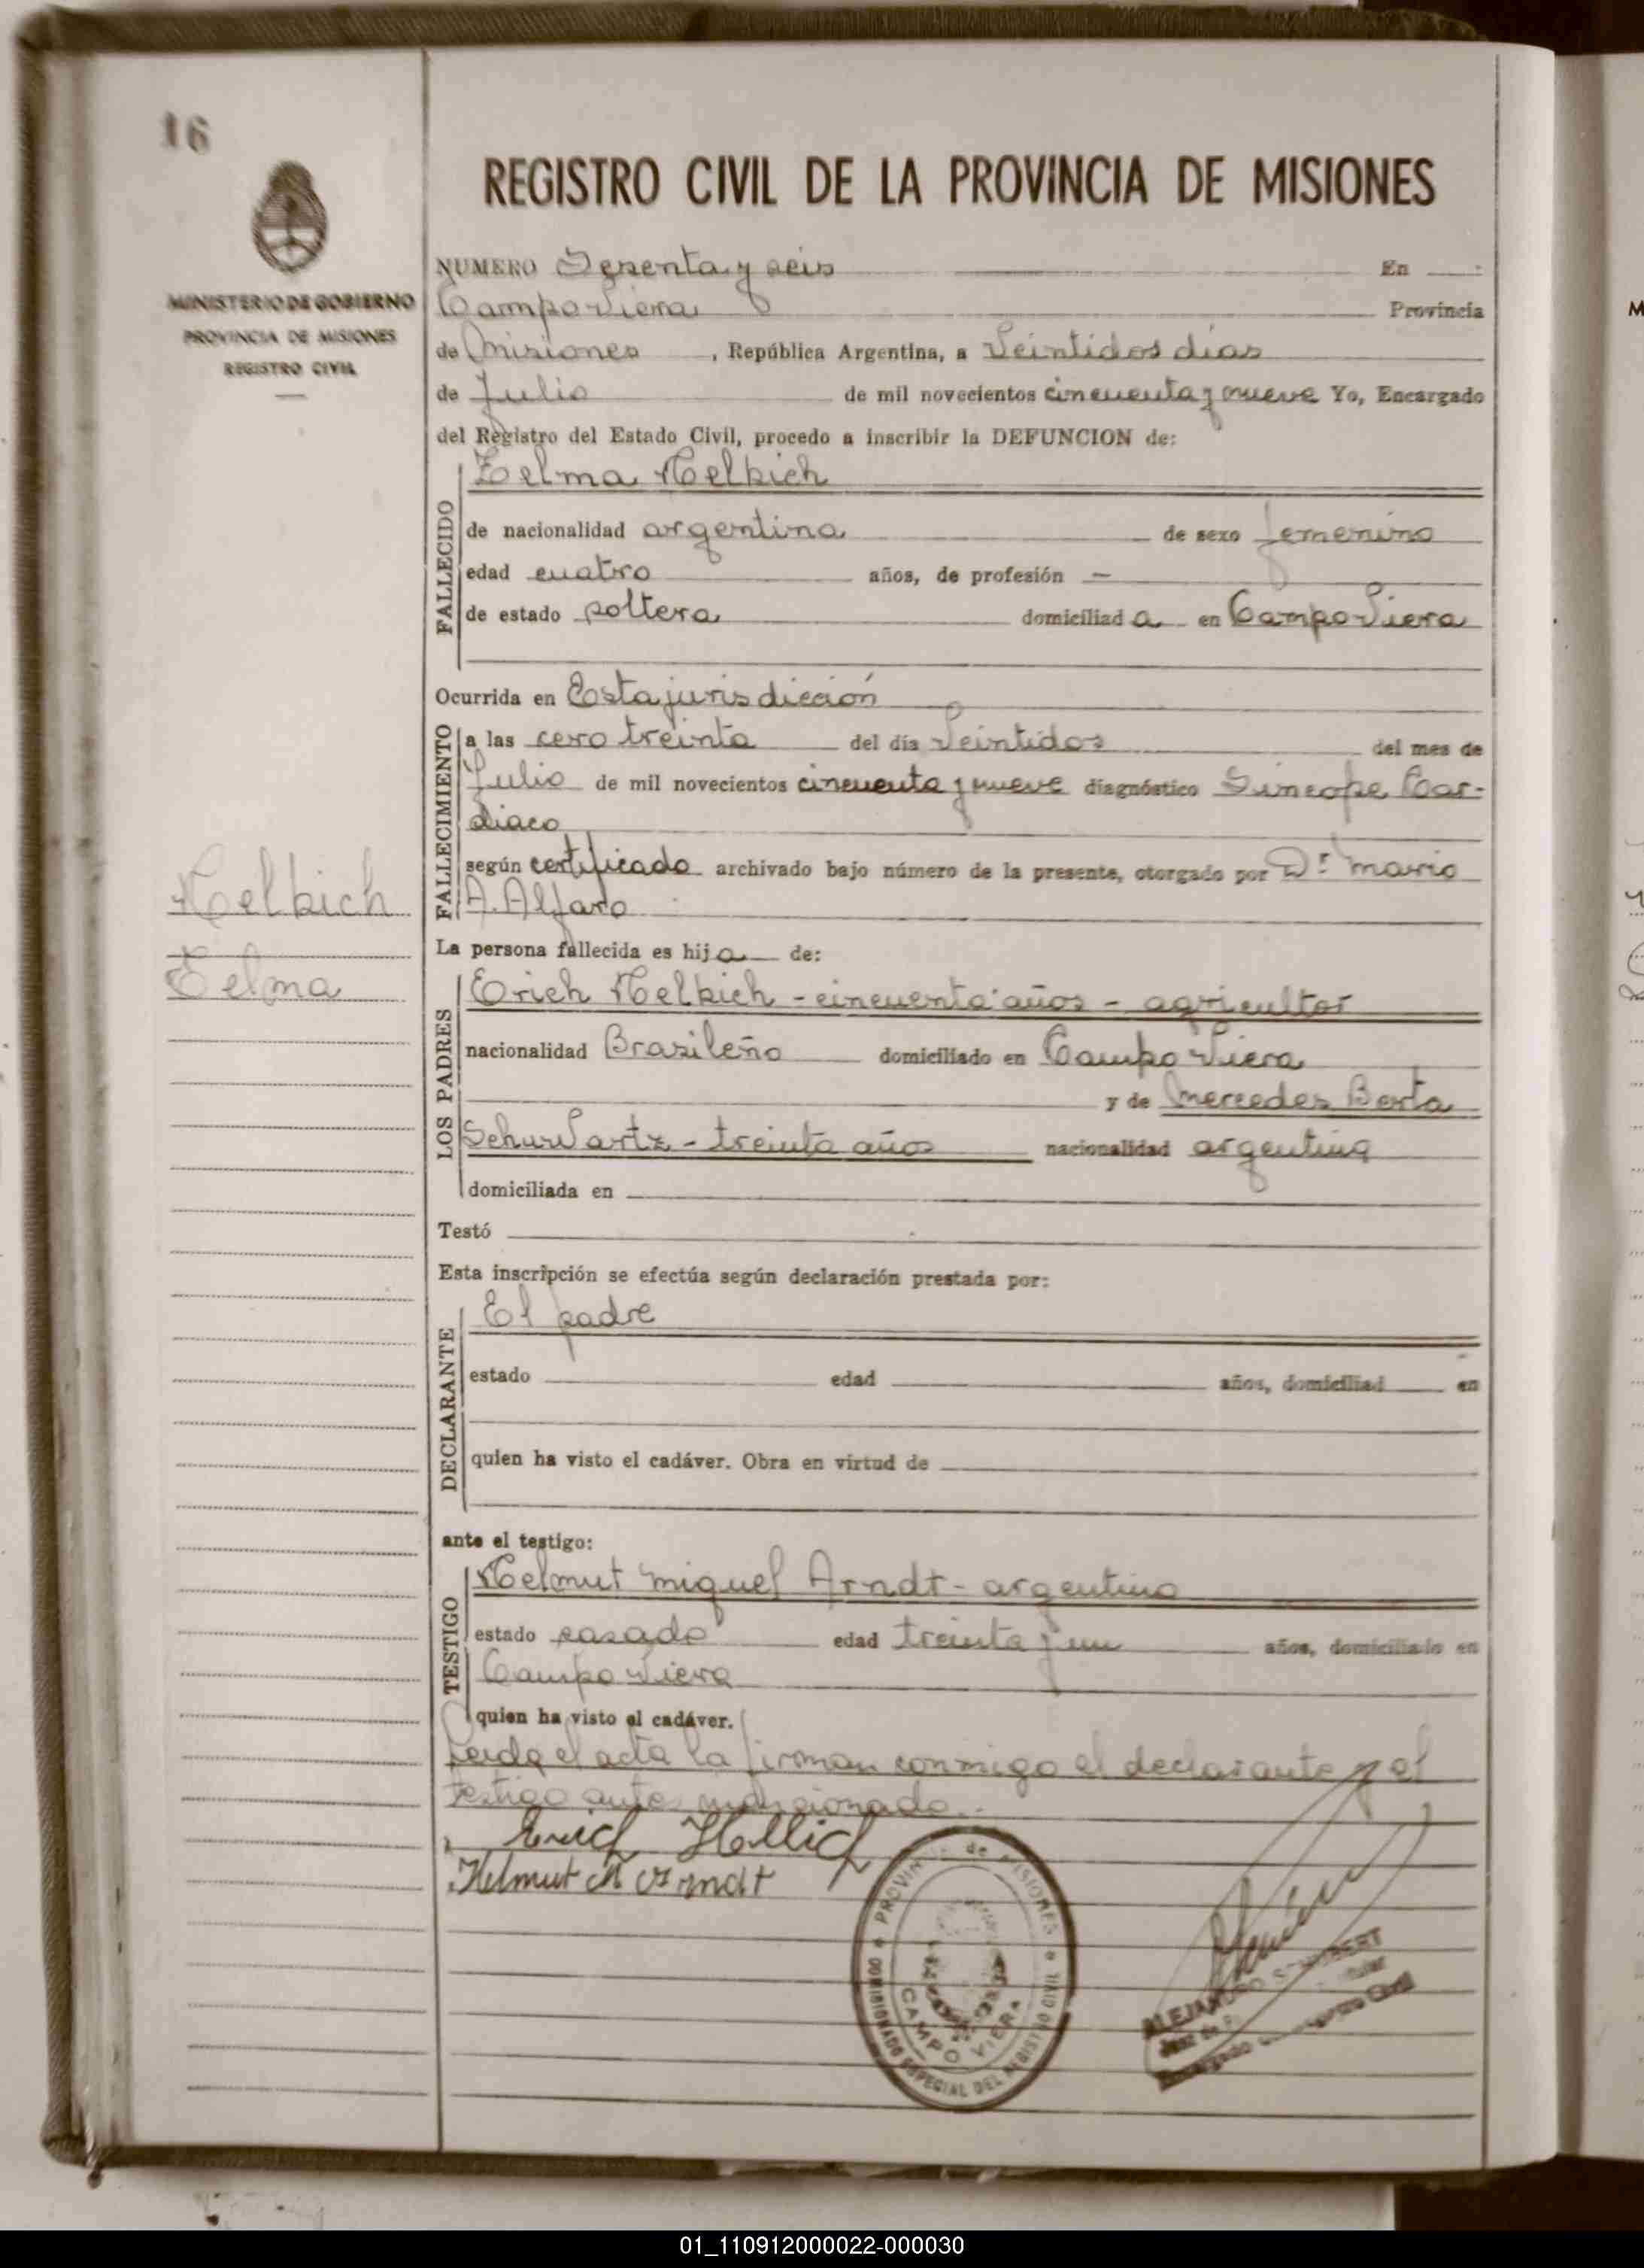 16
REGISTRO CIVIL DE LA PROVINCIA DE MISIONES
MINISTERIO DE GOBIERNO
PROVINCIA DE MISIONES
REGISTRO CIVIL
NUMERO Sesenta y seis En
Campo Viera Provincia
de Misiones, República Argentina, a Veintidos días
de Julio de mil novecientos cincuenta y nueve Yo, Encargado
del Registro del Estado Civil, procedo a inscribir la DEFUNCION de:
FALLECIDO
Telma Helbich
de nacionalidad argentina de sexo femenino
edad cuatro años, de profesión —
de estado soltera domiciliad a en Campo Viera
Ocurrida en Esta jurisdicción
FALLECIMIENTO
a las cero treinta del día Veintidos del mes de
Julio de mil novecientos cincuenta y nueve diagnóstico Sincope Car-
diaco
según certificado archivado bajo número de la presente, otorgado por Dr. Mario
A. Alfaro
Helbich
Telma
La persona fallecida es hij a de:
LOS PADRES
Erich Helbich - cincuenta años - agricultor
nacionalidad Brasileño domiciliado en Campo Viera
y de Mercedes Berta
Schuwartz - treinta años nacionalidad argentina
domiciliada en
Testó
Esta inscripción se efectúa según declaración prestada por:
DECLARANTE
El padre
estado edad años, domiciliad en
quien ha visto el cadáver. Obra en virtud de
ante el testigo:
TESTIGO
Helmut Miguel Arndt - argentino
estado casado edad treinta y un años, domiciliado en
Campo Viera
quien ha visto el cadáver.
Leida el acta la firman conmigo el declarante y el
testigo antes mencionado.-
Erich Helbich
Helmut M Arndt
PROVINCIA de MISIONES
COMISIONADO ESPECIAL DEL REGISTRO CIVIL
CAMPO VIERA
ALEJANDRO
Juez de
Encargado Registro Civil
01_110912000022-000030